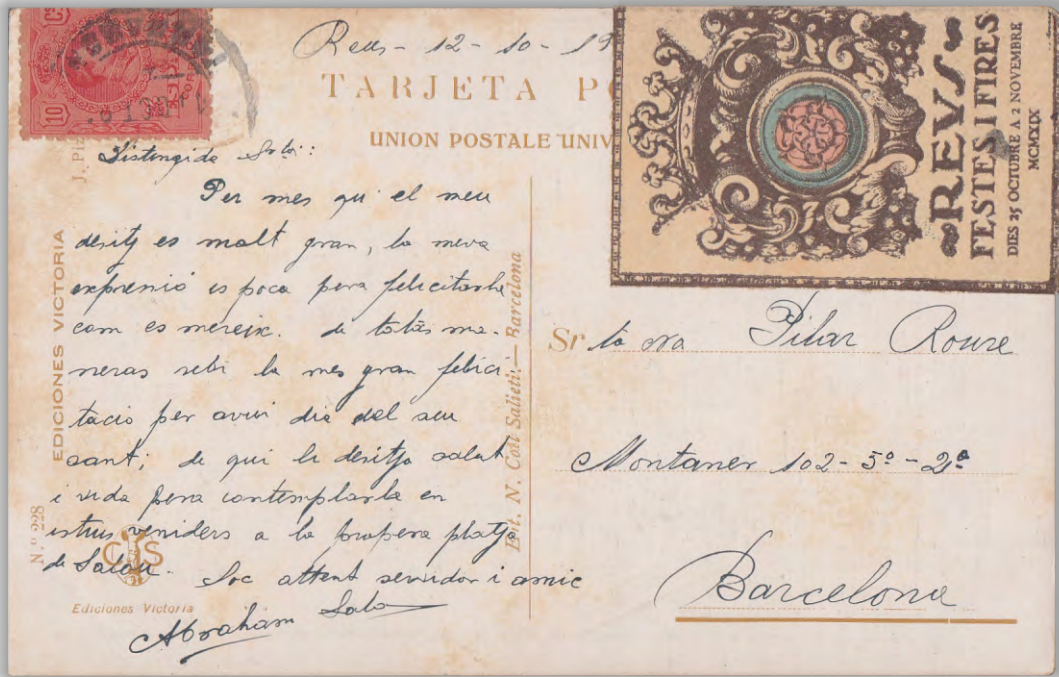 10 Cs
Reus - 12 - 10 - 19
TARJETA PO
UNION POSTALE UNIV
REVS
FESTES I FIRES
DIES 25 OCTUBRE A 2 NOVEMBRE
MCMXIX
J. Pi
EDICIONES VICTORIA
N.º 228
Distingida
Per mes qui el meu
desitj es molt gran, la meva
exprenió es poca pera felicitarla
com es mereix. de totas ma-
neras rebi la mes gran felici
tació per avui dia del seu
sant; de qui li desitja salut
i vida pera contemplarla en
veniders a la platja
de Salou. Soc attent servidor i amic
Abraham
CS
Ediciones Victoria
Edit. N. Coll Salieti; - Barcelona
Srta Pilar Roure
Montaner 102 - 5º - 2ª
Barcelona